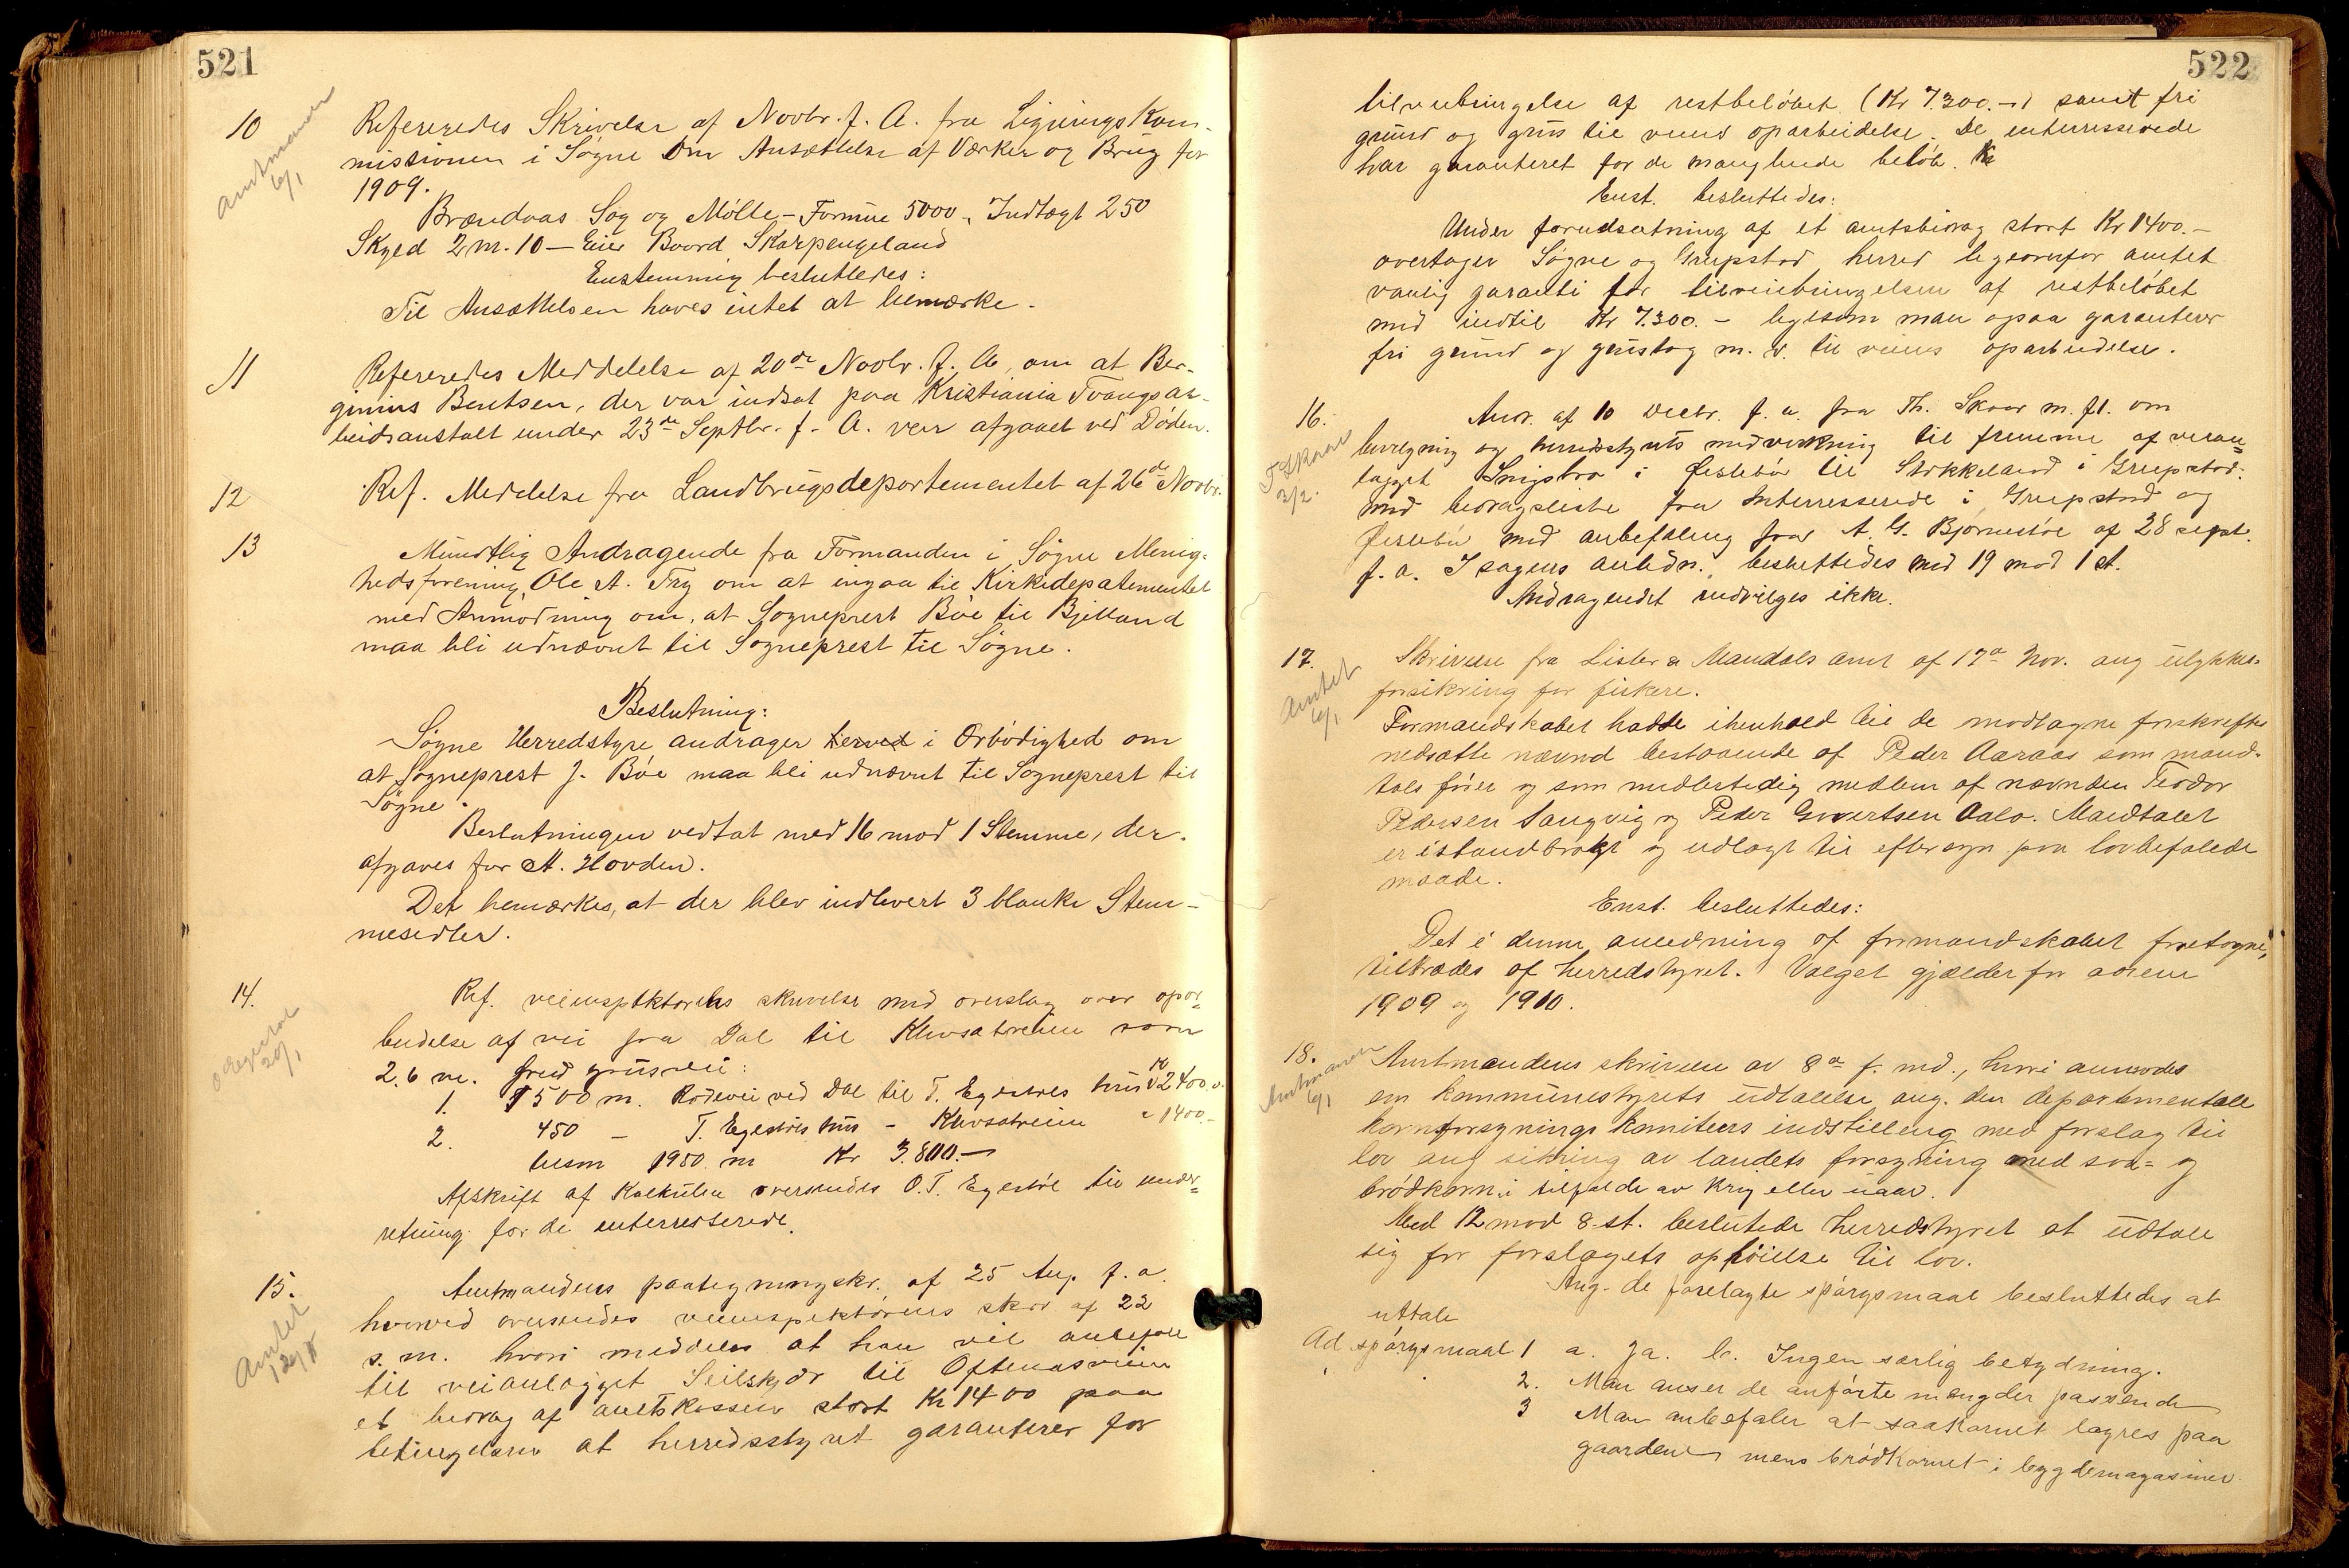 521
10
Amtmannen
6/1
Refereredes Skrivelse af Novbr. f. A. fra Ligningskom-
missionen i Søgne om Ansættelse af Værker og Brug for
1909.
Brændaas Sag og Mølle - Formue 5000, Indtægt 250
Skyld 2 m. 10 - Eier Baard Skarpengeland
Enstemmig besluttedes:
Til Ansættelsen haves intet at bemærke.
11
Refereredes Meddelelse af 20de Novbr. f. A., om at Ber-
ginius Bentsen, der var indsat paa Kristiania Tvangsar-
beidsanstalt under 23de Septbr. f. A. var afgaaet ved Døden.
12
Ref. Meddelelse fra Landbrugsdepartementet af 26de Novbr.
13
Mundtlig Andragende fra Formanden i Søgne Menig-
hedsforening, Ole A. Try om at ingaa til Kirkedepatementet
med Anmodning om, at Sogneprest Bøe til Bjelland
maa bli udnævnt til Sogneprest til Søgne.
Beslutning:
Søgne Herredstyre andrager herved i Ærbødighed om
at Sogneprest J. Bøe maa bli udnævnt til Sogneprest til
Søgne.
Beslutningen vedtat med 16 mod 1 Stemme, der
afgaves for A. Hovden.
Det bemærkes, at der blev indlevert 3 blanke Stem-
mesedler.
14.
20/1
Ref. veiinspektørens skrivelse med overslag over opar=
beidelse af vei fra Dal til som
2.6 m. bred grusvei:
1. 1500 m. Rodevei ved Dal til T. Egestøes hus Kr 2400.-
2. 450 - T. Egestøes hus - " 1400.-
tilsm 1950 m Kr 3.800.-
Afskrift af Kalkulen oversendes O.T. Egestøl til under=
retning for de interresserede.
15.
Amtet
12/8
Amtmandens paategningskr. af 25 Aug. f. a.
hvorved oversendes veiinspektørens skr af 22
s. m. hvori meddeles at han vil anbefale
til veianlægget Seilskjær til Oftenæsveien
et bidrag af amtskassen stort Kr 1400 paa
betingelsen at herredsstyret garanterer for
522
tilveiebringelse af restbeløbet (Kr 7.300.-) samt fri
grund og grus til veiens oparbeidelse. De interresserede
har garanteret for de manglende beløb. Kr
Enst. besluttedes:
Under forudsætning af et amtsbidrag stort Kr 1400.-
overtager Søgne og Greipstad herred ligeoverfor amtet
vanlig garanti for tilveiebringelsen af restbeløbet
med indtil Kr 7.300.- ligesom man opaa garanterer
fri grund og grustag m. v. til veiens oparbeidelse.
16.
T Skaar
3/2.
Andr. af 10 Decbr. f. a. fra Th. Skaar m. fl. om
bevilgning og herredsstyrets medvirkning til fremme af veian=
lægget Snigsbro i Øislebø til Stokkeland i Greipstad.
med bidragsliste fra Interresserede i Greipstad og
Øislebø med anbefaling fra A. G. Bjørnestøe af 28 sept.
f. a. I sagens anledn. besluttedes med 19 mod 1 st.
Andragendet indvilges ikke.
17.
Amtet
6/1
Skrivelse fra Lister & Mandals amt af 17de Nov. ang ulykkes-
forsikring for fiskere.
Formandskabet hadde ihenhold til de modtagne forskrifter
nedsatte nævnd bestaaende af Peder Aaraas som mand-
talsfører og som midlertidig medlem af nævnden Teodor
Pedersen Langvig og Peder Govertsen Aalo. Mandtalet
er istandbrakt og udlagt til eftersyn paa lovbefalede
maade.
Enst. besluttedes:
Det i denne anledning af formandskabet foretagne,
tiltrædes af herredstyret. Valget gjælder for aarene
1909 og 1910.
18.
Amtmanden
6/1
Amtmandens skrivelse av 8de f. md., hvori anmodes
om kommunestyrets udtalelse ang. den departementale
kornforsynings komitees indstilling med forslag til
lov ang sikring av landets forsyning med saa= og
brødkorn i tilfælde av krig eller uaar.
Med 12 mod 8 st. beslutede herredstyret at udtale
sig for forslagets ophøielse til lov.
Ang. de forelagte spørgsmaal besluttedes at
uttale
Ad spørgsmaal 1 a. Ja. b. Ingen særlig betydning.
2. Man anser de anførte mængder passende
3 Man anbefaler at saakornet lagres paa
gaardene mens brødkornet i bygdemagasiner